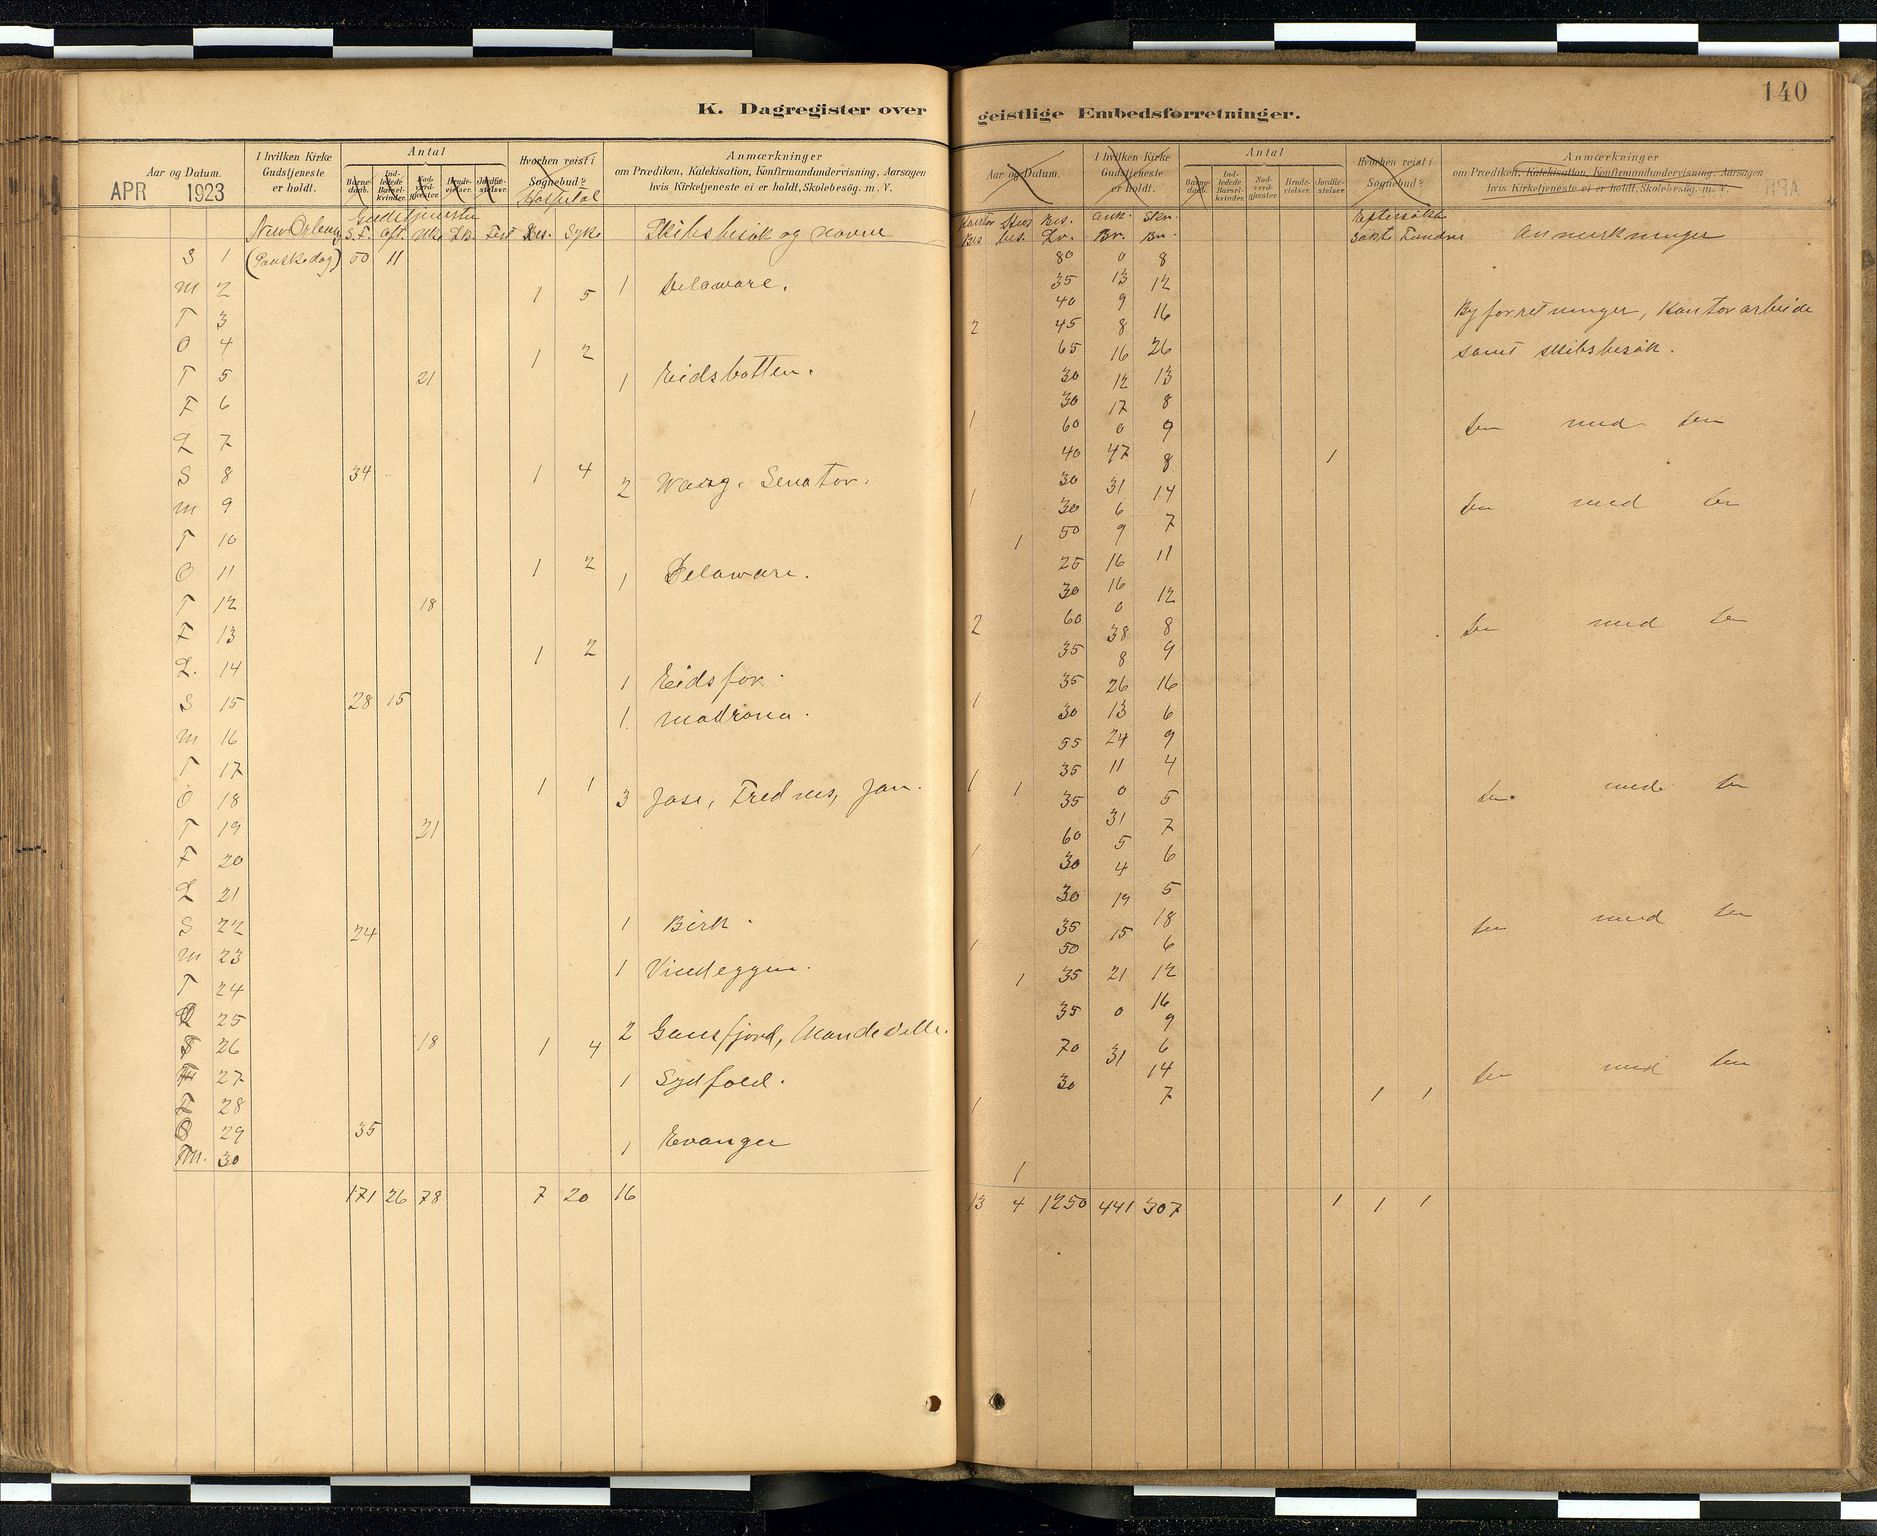 140
K. Dagregister over geistlige Embedsforretninger.
Aar og Datum.
I hvilken Kirke Gudstjeneste er holdt.
Antal
Barnedaab.
Indledede Barselkvinder.
Nadverdgjæster.
Brudevielser.
Jordfæstelser.
Hvorhen reist i Sognebud?
Anmærkninger
om Prædiken, Katekisation, Konfirmandundervisning, Aarsagen
hvis Kirketjeneste ei er holdt, Skolebesøg. m. V.
Aar og Datum.
I hvilken Kirke Gudstjeneste er holdt.
Antal
Barnedaab.
Indledede Barselkvinder.
Nadverdgjæster.
Brudevielser.
Jordfæstelser.
Hvorhen reist i Sognebud?
Anmærkninger
om Prædiken, Katekisation, Konfirmandundervisning, Aarsagen
hvis Kirketjeneste ei er holdt, Skolebesøg. m. V.
APR 1923
Hospital
Gudstjeneste
New Orleans S.F. Aft. Uke Fest Bes. Syke Skibsbesøk og navne
Kontor Hus Bes. Ank. Skr.
Bes bes. Lr. Br. Br.
Eftersøkte
Søkte Fundne Anmerkninger
S 1 (Paaskedag) 50 11
M 2 1 5 1 Delaware.
T 3
O 4 1 2
T 5 21 1 Eidsbotten.
F 6
L 7
S 8 34 1 4 2 Senator.
M 9
T 10
O 11 1 2 1 Delaware.
T 12 18
F 13 1 2
L. 14 1 Eidsfos.
S 15 28 15 1 Madrona.
M 16
T 17
O 18 1 1 3 Jan.
T 19 21
F 20
L 21
S 22 24 1 Birk.
M 23 1 Vindeggen.
T 24
O 25
T 26 18 1 4 2 Mandeville.
F 27 1 Sydfold.
L 28
S 29 35 1 Evanger
M. 30
171 26 78 7 20 16
80 0 8
35 13 12
40 9 16
2 45 8
65 16 26
30 12 13
30 17 8
1 60 0 9
40 47 8 1
30 31 14
1 30 6 7
1 50 9
25 16 11
30 16 12
60 0
2 38 8
35 8 9
35 26 16
1 30 13 6
55 24 9
35 11 4
1 1 35 0 5
60 31 7
1 30 5 6
30 4 5
35 19 18
1 50 15 6
1 35 21 12
35 0 16
9
70 31 6
30 14
1 7 1 1
1
13 4 1250 441 307 1 1 1
Byforretninger, Kontorarbeide
samt skibsbesøk.